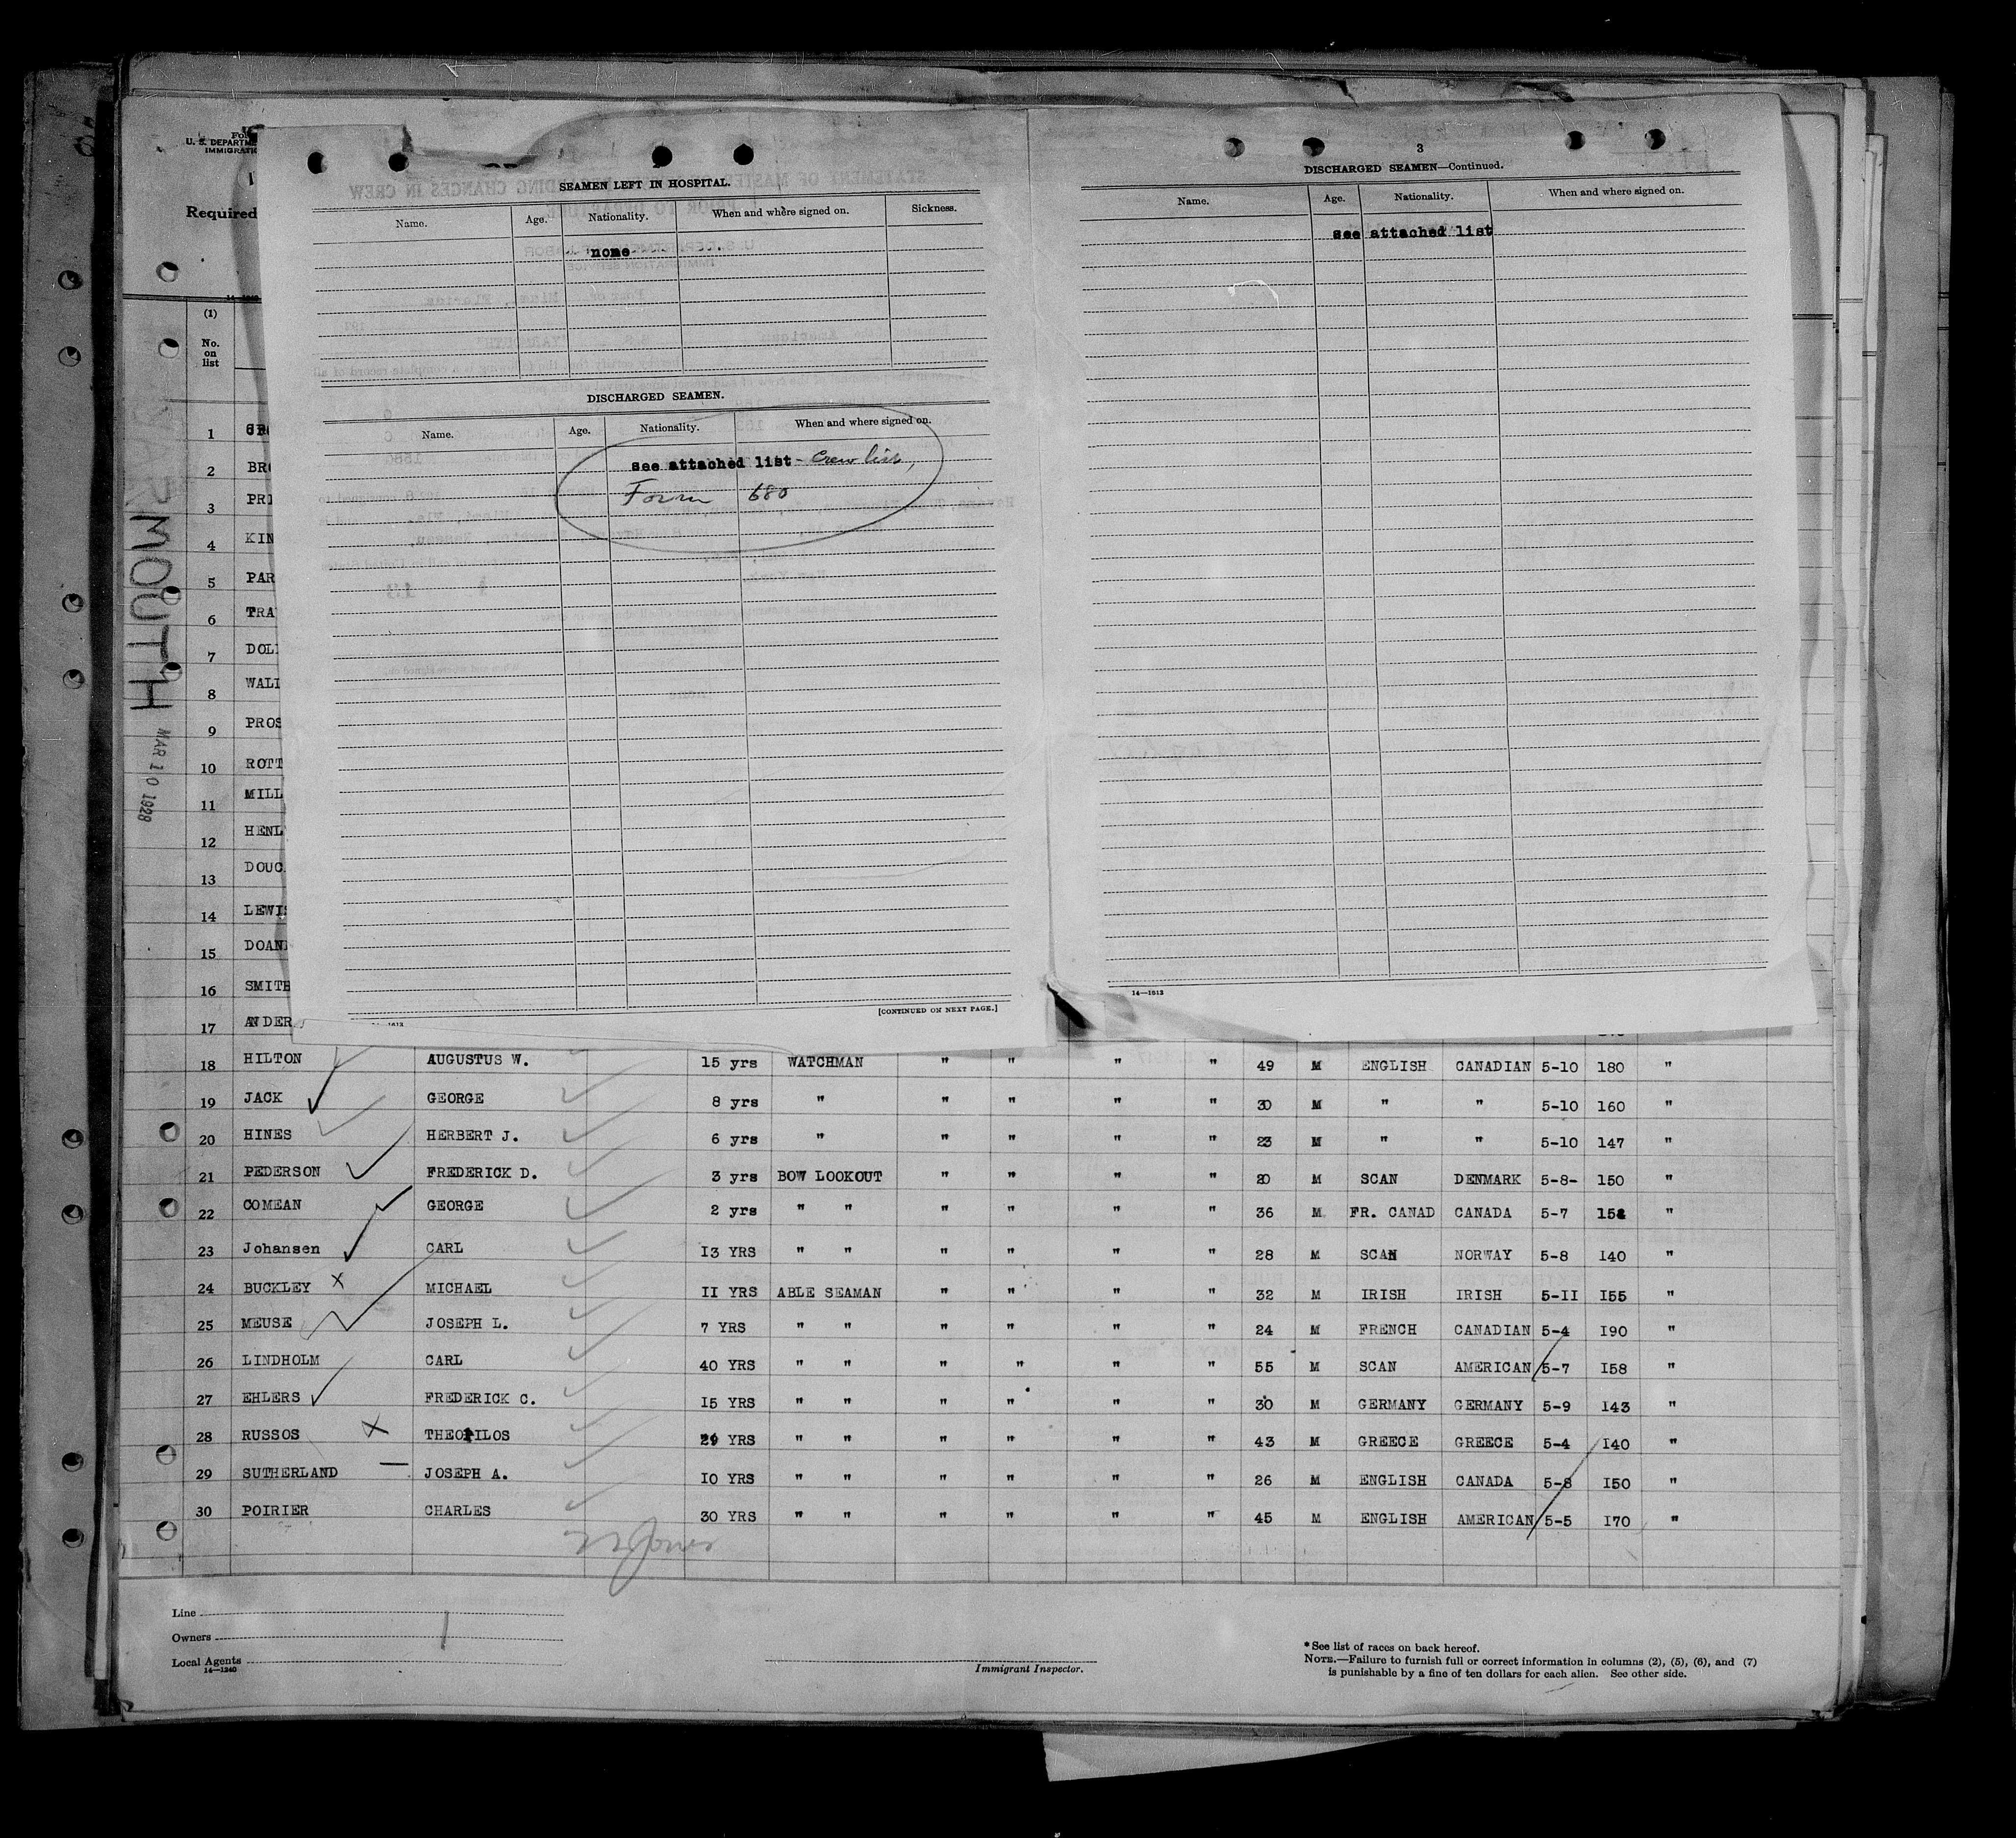 U. S. DEPARTME
IMMIGRATIO
Required
(1)
No.
on
list
SEAMEN LEFT IN HOSPITAL.
Name. Age. Nationality. When and where signed on. Sickness.
none
DISCHARGED SEAMEN.
Name. Age. Nationality. When and where signed on.
see attached list - Crew list,
Form 680
[CONTINUED ON NEXT PAGE.]
3
DISCHARGED SEAMEN—Continued.
Name. Age. Nationality. When and where signed on.
see attached list
14—1613
MOUTH
MAR 10 1928
1
2 BRO
3 PRI
4 KIN
5 PAR
6 TRA
7 DOL
8 WALL
9 PROS
10 ROTT
11 MILL
12 HENL
13 DOUG
14 LEWIS
15 DOAN
16 SMITH
17 ANDER
18 HILTON AUGUSTUS W. 15 yrs WATCHMAN " " " " 49 M ENGLISH CANADIAN 5-10 180 "
19 JACK GEORGE 8 yrs " " " " " 30 M " " 5-10 160 "
20 HINES HERBERT J. 6 yrs " " " " " 23 M " " 5-10 147 "
21 PEDERSON FREDERICK D. 3 yrs BOW LOOKOUT " " " " 20 M SCAN DENMARK 5-8- 150 "
22 COMEAN GEORGE 2 yrs " " " " " " 36 M FR. CANAD CANADA 5-7 "
23 Johansen CARL I3 YRS " " " " " " 28 M SCAN NORWAY 5-8 I40 "
24 BUCKLEY X MICHAEL II YRS ABLE SEAMAN " " " " 32 M IRISH IRISH 5-II I55 "
25 MEUSE JOSEPH L. 7 YRS " " " " " " 24 M FRENCH CANADIAN 5-4 I90 "
26 LINDHOLM CARL 40 YRS " " " " " " 55 M SCAN AMERICAN 5-7 I58 "
27 EHLERS FREDERICK C. I5 YRS " " " " " " 30 M GERMANY GERMANY 5-9 I43 "
28 RUSSOS X THEOFILOS 29 YRS " " " " " " 43 M GREECE GREECE 5-4 I40 "
29 SUTHERLAND — JOSEPH A. I0 YRS " " " " " " 26 M ENGLISH CANADA 5-8 I50 "
30 POIRIER CHARLES 30 YRS " " " " " " 45 M ENGLISH AMERICAN 5-5 I70 "
Line
Owners
Local Agents
14—1240
Immigrant Inspector.
*See list of races on back hereof.
NOTE.—Failure to furnish full or correct information in columns (2), (5), (6), and (7)
is punishable by a fine of ten dollars for each alien. See other side.